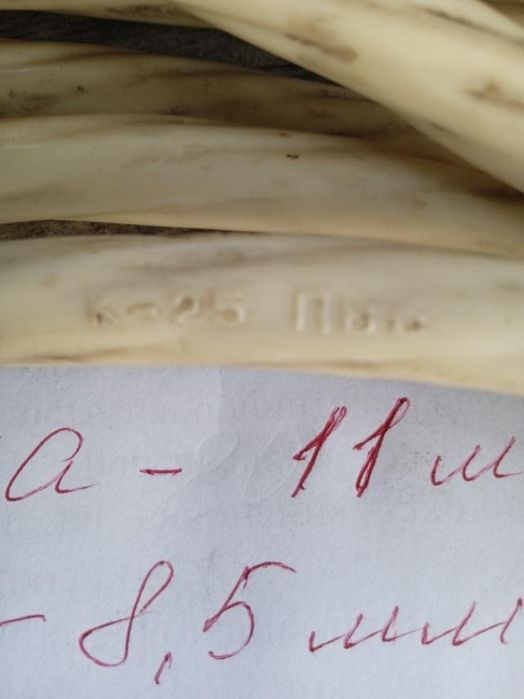 К-25
а - 11 м
- 8,5 мм